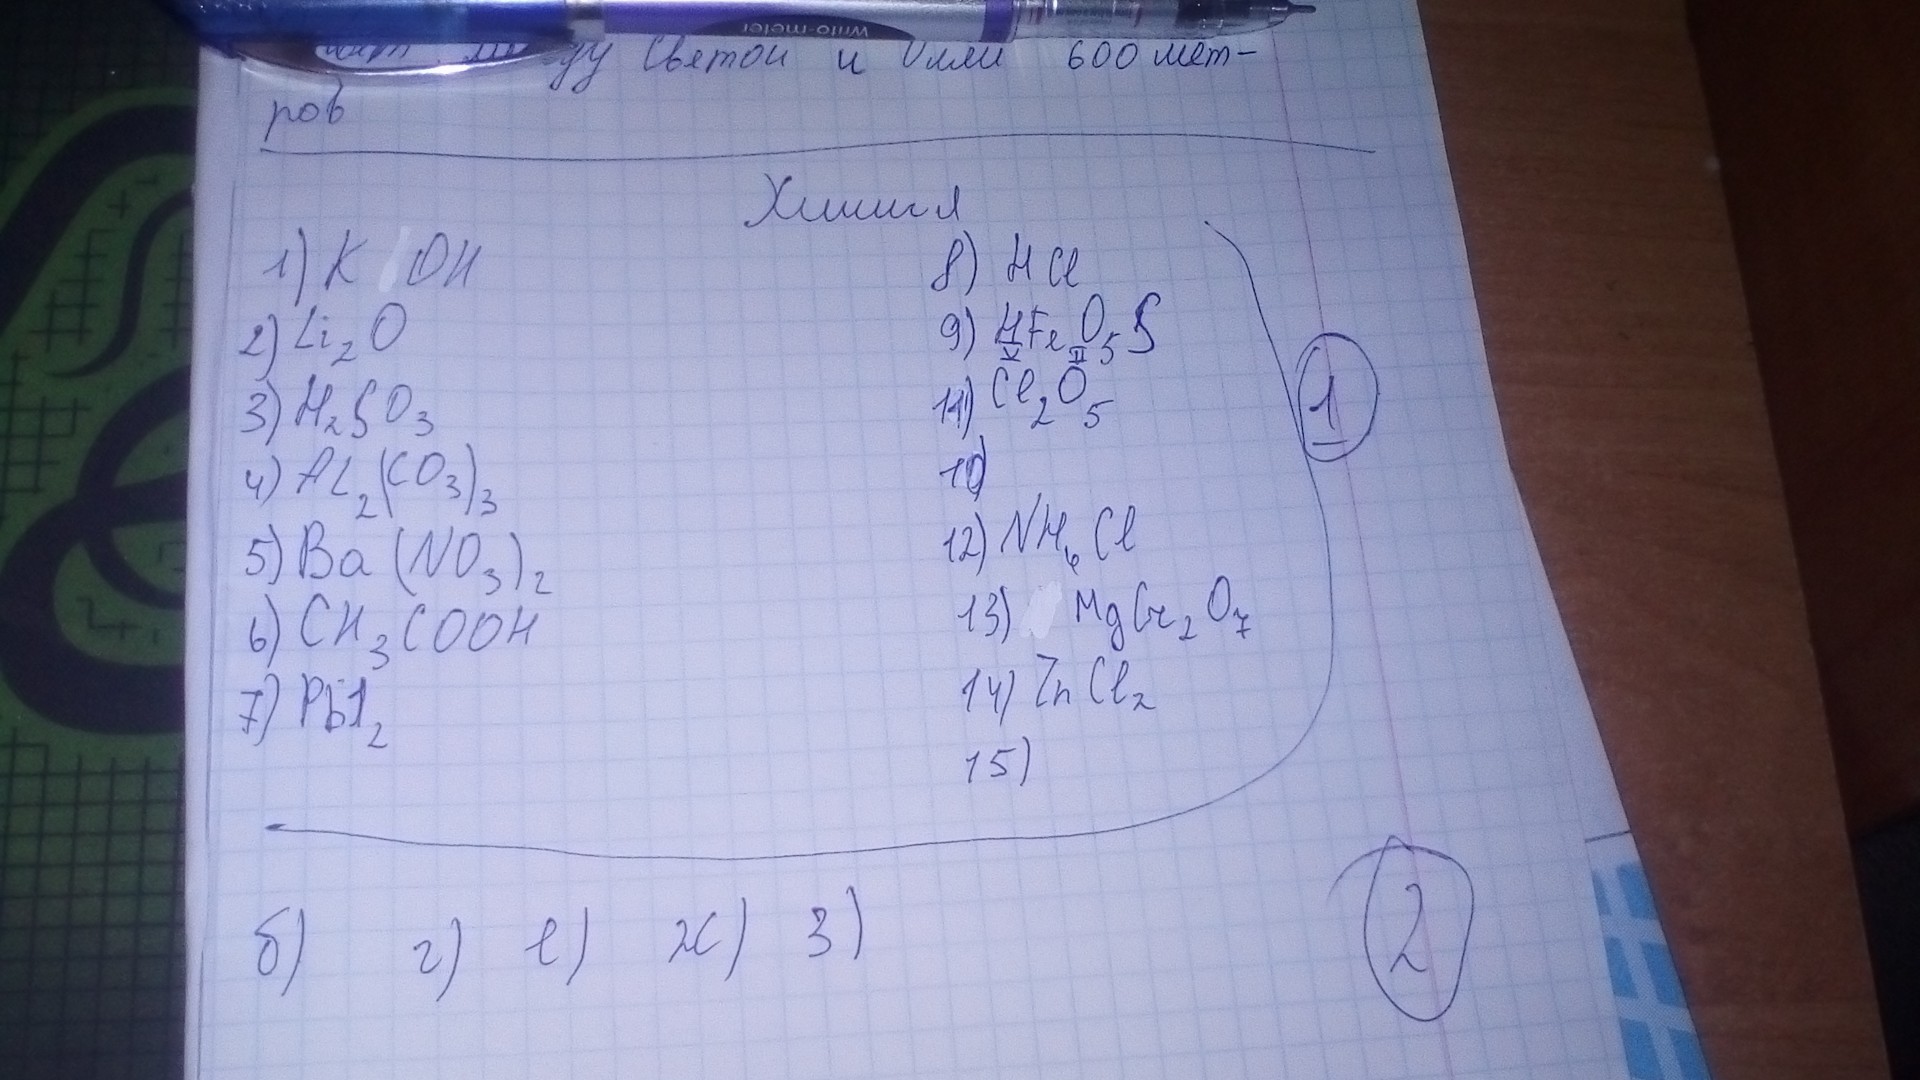 между Светой и Олей 600 мет-
ров
Химия
1) K OH
2) Li2O
3) H2SO3
4) AL2(CO3)3
5) Ba(NO3)2
6) CH3COOH
7) PbI2
8) HCl
9) HFeO5S
V II
11) Cl2O5
10)
12) NH4Cl
13) MgCr2O7
14) ZnCl2
15)
1
б) г) е) ж) з)
2
write-o-meter